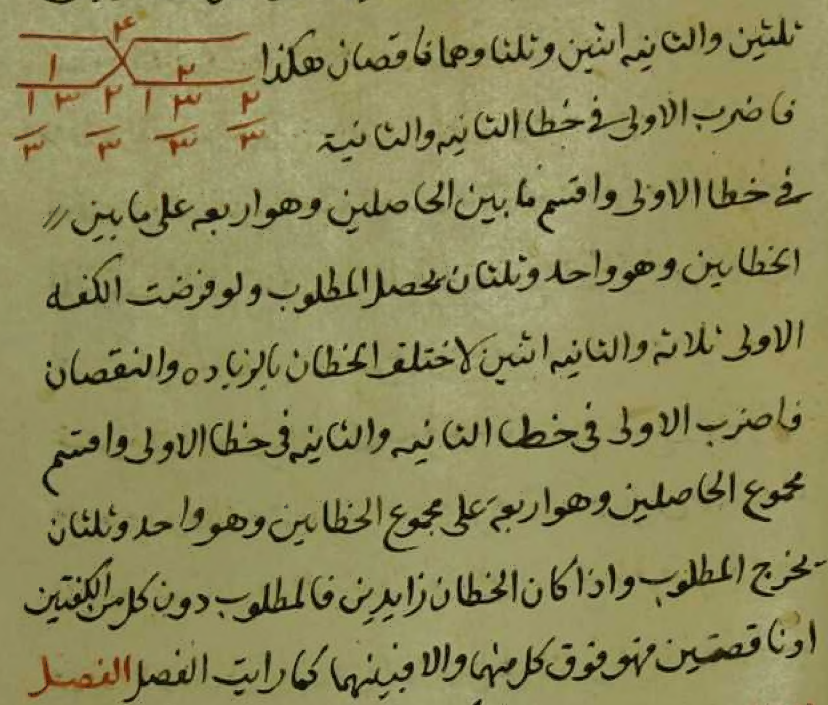 ثلثين والثانيه اثنين وثلثا وهما ناقصان هكذا
فاضرب الاولى في خطا الثانيه والثانية
في خطا الاولى واقسم ما بين الحاصلين وهو اربعه على ما بين
الخطايين وهو واحد وثلثان يحصل المطلوب ولو فرضت الكفه
الاولى ثلاثه والثانيه اثنين لاختلف الخطان بالزياده والنقصان
فاضرب الاولى في خطا الثانيه والثانيه في خطا الاولى واقسم
مجموع الحاصلين وهو اربعة على مجموع الخطايين وهو واحد وثلثان
يخرج المطلوب واذا كان الخطان زايدين فالمطلوب دون كل من الكفتين
او ناقصتين فهو فوق كل منهما والا فبينهما كما رايت الفصل الفصل